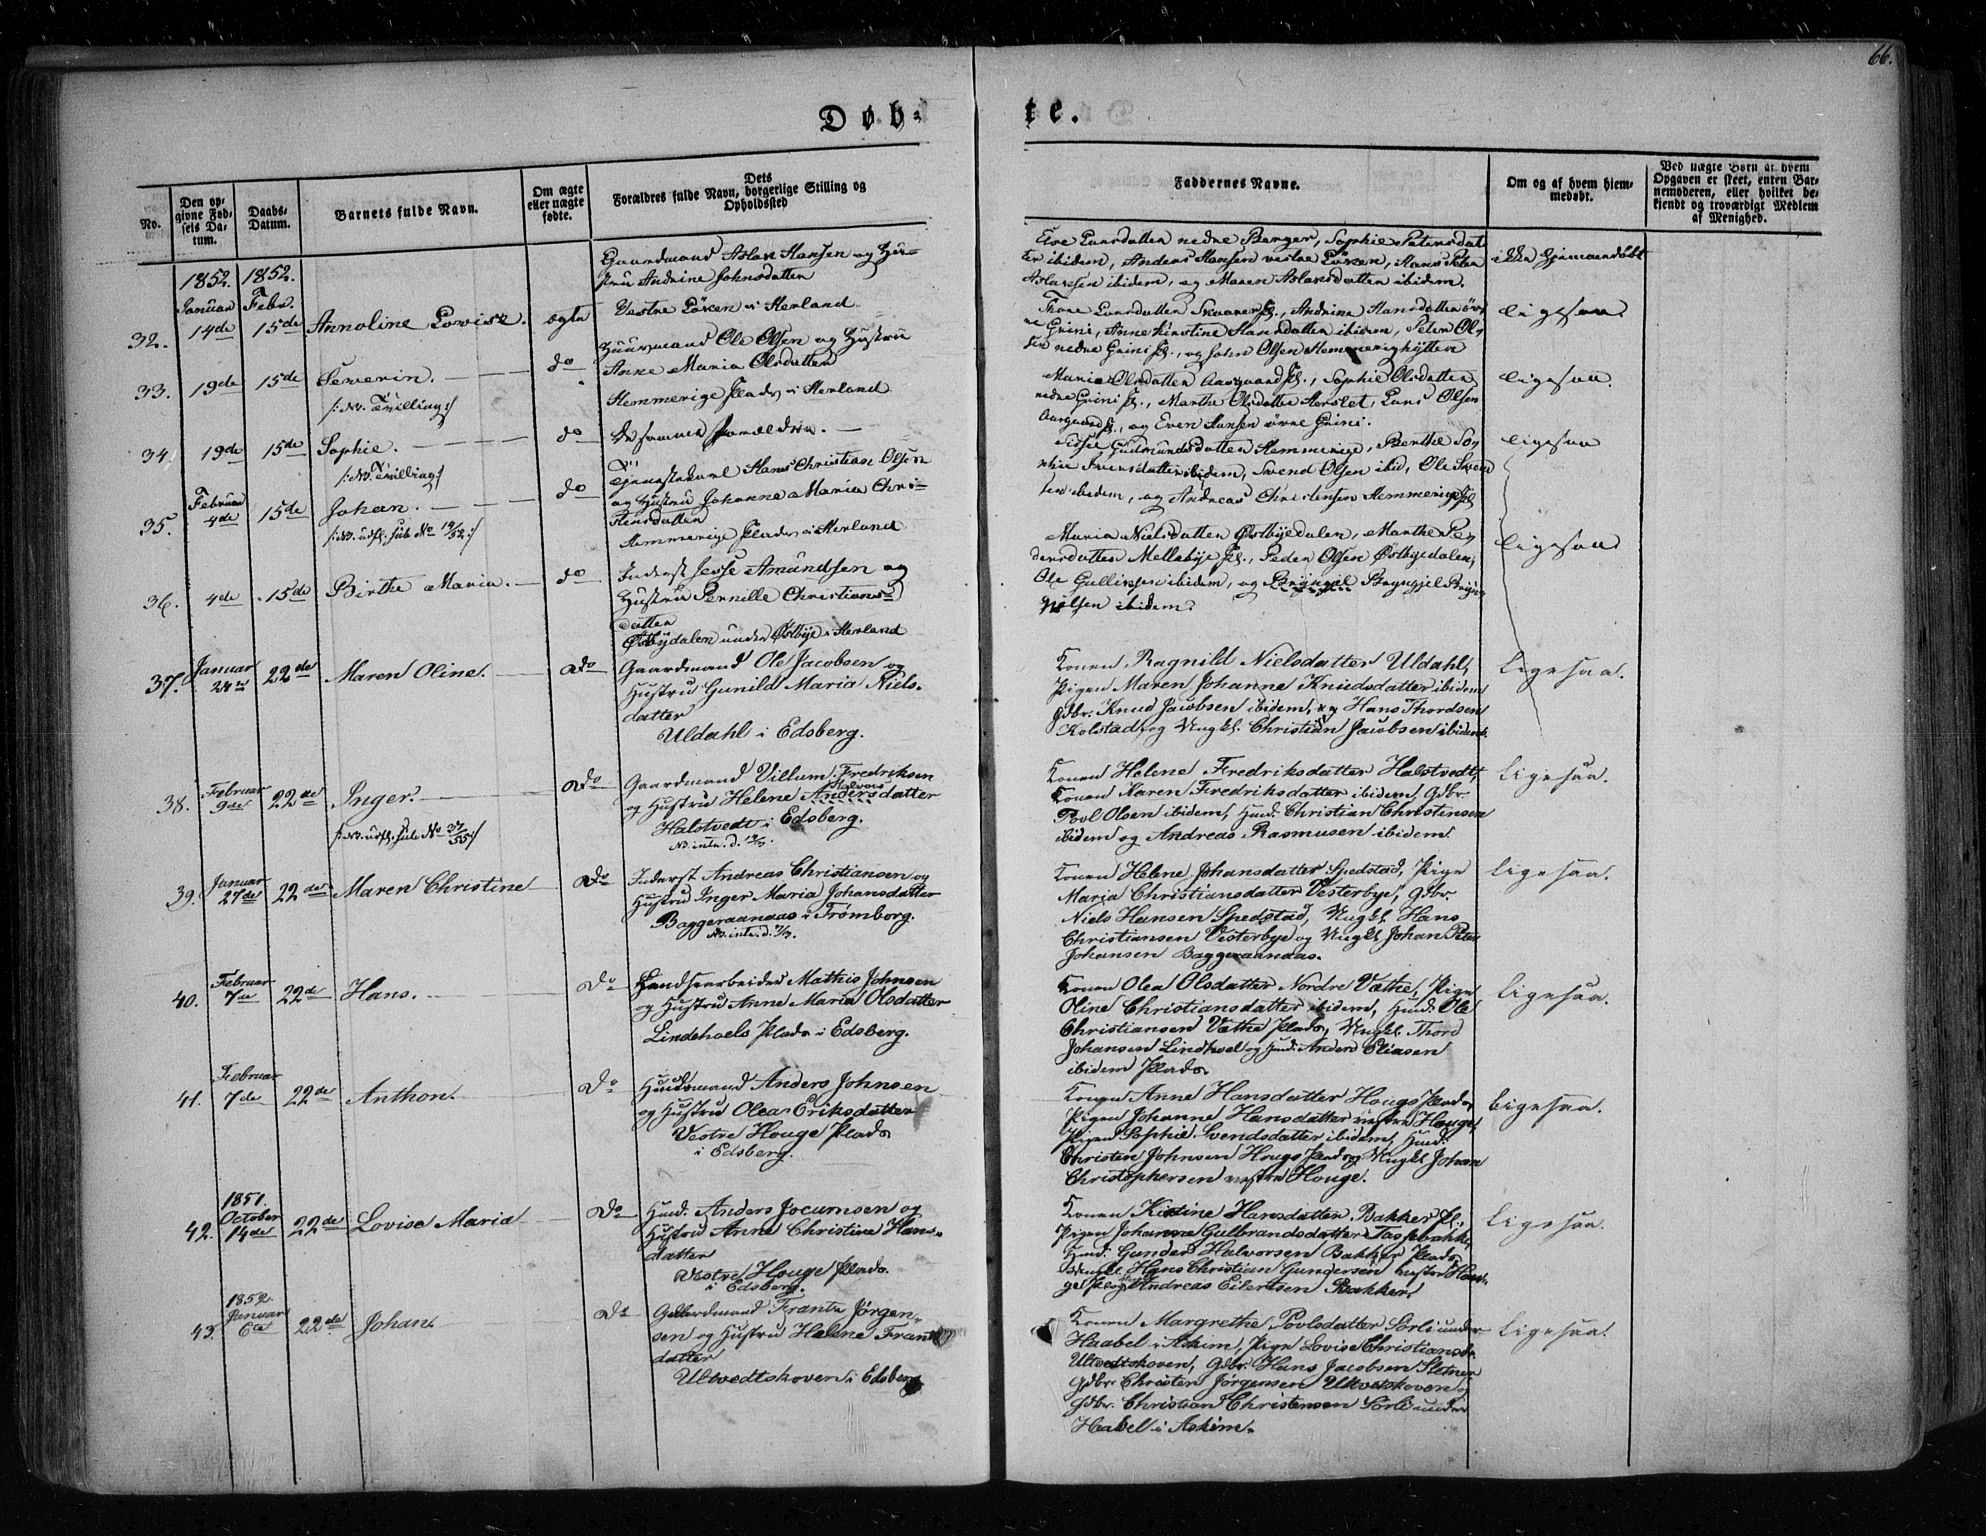 66.
Døb-
te.
No.
Den op-
givne Fød-
sels Da-
tum.
Daabs-
Datum.
Barnets fulde Navn.
Om ægte
eller uægte
fødte.
Dets
Forældres fulde Navn, borgerlige Stilling og
Opholdssted
Faddernes Navne.
Om og af hvem hjem-
medøbt.
Ved uægte Børn at hvem
Opgaven er skeet, enten Bar-
nemoderen, eller hvilket be-
kjendt og troværdigt Medlem
af Menighed.
32.
1852.
Januar
14de
1852.
Febr.
15de
Annoline Lovise.
ægte
Gaardmand Aslak Hansen og Hu-
stru Andrine Johnsdatten
Vestre Löken i Herland
Larsdatten nedre Berger, Sophie Petersdat
ter ibidem, Anders Hansen vestre Löken, Hans Peter
Aslaksen ibidem, og Maren Aslaksdatten ibidem.
ikke hjemmedöbt
33.
19de
15de
Severin.
/: NB. Tvilling :/
do
Huusmand Ole Olsen og Hustru
Anne Maria Olsdatten
Hemmerige Plads i Herland
Larsdatten Pl., Andrine Hansdatten öv-
re Grini, Anne Kirstine Hansdatten ibidem, Peter Ol-
sen nedre Grini Pl., og John Olsen Hemmerighytten
ligesaa
34.
19de
15de
Sophie.
/: NB. Tvilling :/
do
De samme Forældre.
Maria Olsdatten Aasgaard Pl., Sophie Olsdatten
nedre Grini Pl., Marthe Olsdatten Herslet, Lars Olsen
Aasgaard Pl., og Even Hansen övre Grini.
ligesaa.
35.
Februar
4de
15de
Johan.
/: NB. udfl. sub No 19/52 :/
do
Tjenestekarl Hans Christian Olsen
og Hustru Johanne Maria Chri-
stensdatten
Hemmerige Plads i Herland
Gudmundsdatten Hemmerige, Berthe So-
phie Svensdatten ibidem, Svend Olsen ibid, Ole Svend
sen ibidem, og Andreas Christensen Hemmerige Pl
ligesaa
36.
4de
15de
Birthe Maria.
do
Inderst Jesse Amundsen og
Hustru Pernille Christians-
datten
Østbydalen under Østbye i Herland
Maria Nielsdatten Østbyedalen, Marthe Pe-
dersdatten Mellebye Pl., Peder Olsen Østbyedalen,
Ole Gulliksen ibidem, og Bryngel Bryngjel Bryn
gjelsen ibidem.
ligesaa
37.
Januar
22de
Maren Oline.
Do
Gaardmand Ole Jacobsen og
Hustru Gunild Maria Niels-
datter
Uldahl i Edsberg.
Konen Ragnild Nielsdatter Uldahl,
Pigen Maren Johanne Knudsdatter ibidem
Gdbr. Knud Jacobsen ibidem, og Hans Thordsen
Kolstad og Ungkl. Christian Jacobsen ibidem.
ligesaa.
38.
Februar
9de
22de
Inger.
/: NB. udfl. sub No 37/55 :/
Do
Gaardmand Villum Fredriksen
og Hustru Helene Andersdatter
Halvors
Halstvedt i Edsberg.
Konen Helene Fredriksdatter Halstvedt,
Konen Karen Fredriksdatter ibidem, Gdbr.
Povl Olsen ibidem, Huud. Christian Christensen
ibidem og Andreas Rasmusen ibidem.
ligesaa.
39.
Januar
27de
22de
Maren Christine
Do
Inderst Andreas Christiansen og
Hustru Inger Maria Johansdatter
Baggeraanaas i Trömborg.
Konen Helene Johansdatter Spedstad, Pige
Maria Christiansdatter Vesterbye, Gdbr.
Niels Hansen Spedstad, Ungkl. Hans
Christiansen Vesterbye og Ungkl Johan Peter
Johansen Baggeraanaas.
ligesaa.
40.
Februar
7de
22de
Hans.
Do
Landsearbeider Mathis Johnsen
og Hustru Anne Maria Olsdatter
Lindehoels Plads i Edsberg.
Konen Olea Olsdatter Nordre Væthe, Pigen
Oline Christiansdatter ibidem, Huud. Ole
Christiansen Væthe Plads, Ungkl. Thord
Johansen Lindhoel og Huud. Anders Eliasen
ibidem Plads
ligesaa.
41.
Februar
7de
22de
Anthon.
Do
Huusmand Anders Johnsen
og Hustru Olea Eriksdatter
Vestre Houge Plads
i Edsberg.
Konen Anne Hansdatter Hougs Plads,
Pigen Johanne Hansdatter vestre Houge,
Pigen Sophie Svendsdatter ibidem, Huud.
Christen Johnsen Hougs Plads og Ungkl Johan
Christophersen vestre Houge.
Ligesaa.
42.
1851.
October
14de
22de
Lovise Maria
Do
Huud. Anders Jocumsen og
Hustru Anne Christine Hans-
datter
Vestre Houge Plads.
i Edsberg.
Konen Kirstine Hansdatter Bakker Pl.
Pigen Johanne Gulbrandsdatter Tassebakke,
Huud. Gunder Halvorsen Bakker Plads,
Ungkl. Hans Christian Gundersen vestre Hou-
ge Pl og Andreas Eilertsen Bakker.
ligesaa.
43.
1852.
Januar
6te
22de
Johan.
Do
Gaardmand Frants Jörgen-
sen og Hustru Helene Frants
datter
Ultvedtskoven i Edsberg
Konen Margrethe Povlsdatter Sörli under
Haabel i Askim, Pige Lovise Christiansd.
Ultvedtskoven, Gdbr. Hans Jacobsen Sletner
Gdbr. Christen Jörgensen Ultvedtskoven og
Gdbr. Christian Christensen Sörli under
Haabel i Askim.
ligesaa.